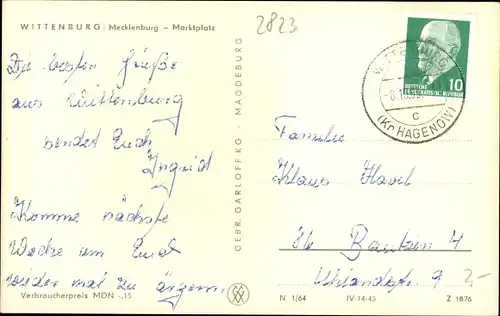 WITTENBURG / Mecklenburg — Marktplatz
2823
Die besten Grüße
aus Wittenburg
sendet Euch
Ingrid
Komme nächste
Woche um Euch
wieder mal zu ärgern.
Verbraucherpreis MDN -,15
GEBR. GARLOFF KG · MAGDEBURG
WITTENBURG
c
(Kr. HAGENOW)
10
DEUTSCHE
DEMOKRATISCHE REPUBLIK
Familie
Klaus Havel
86 Bautzen 4
Uhlandstr. 9
N 1/64
IV-14-45
Z 1876